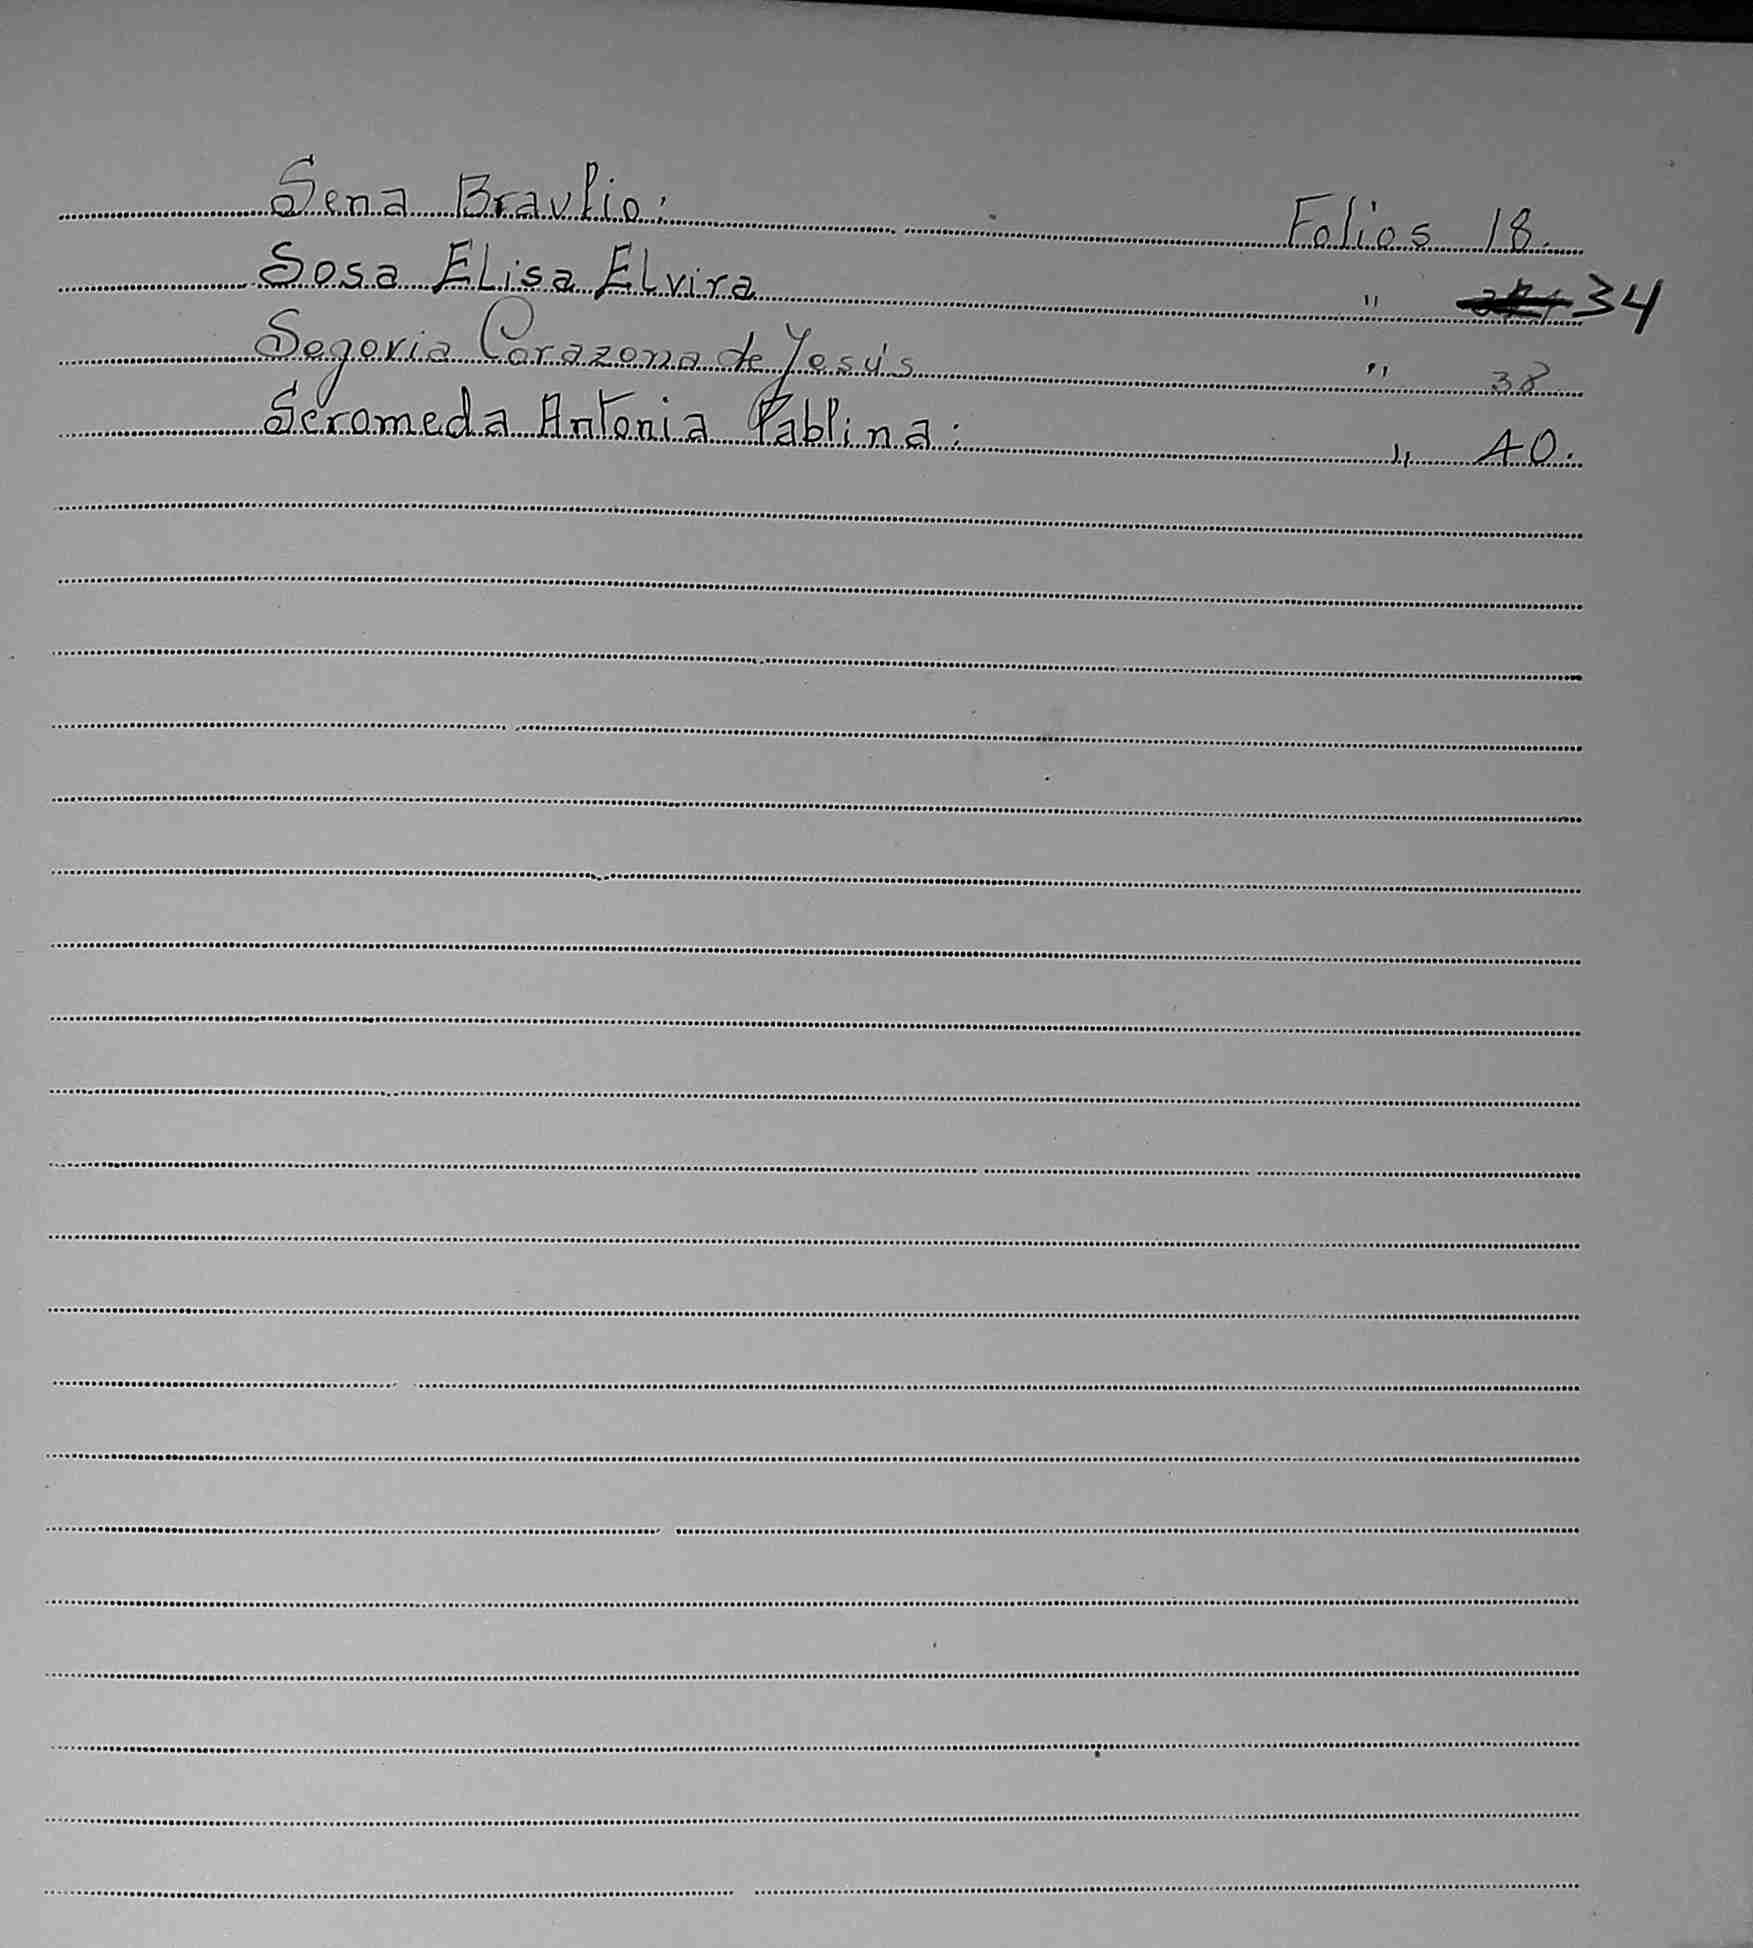 Sena Braulio: Folios 18.
Sosa Elisa Elvira " 34
Segovia Corazona de Jesús " 38
Seromeda Antonia Pablina: " 40.